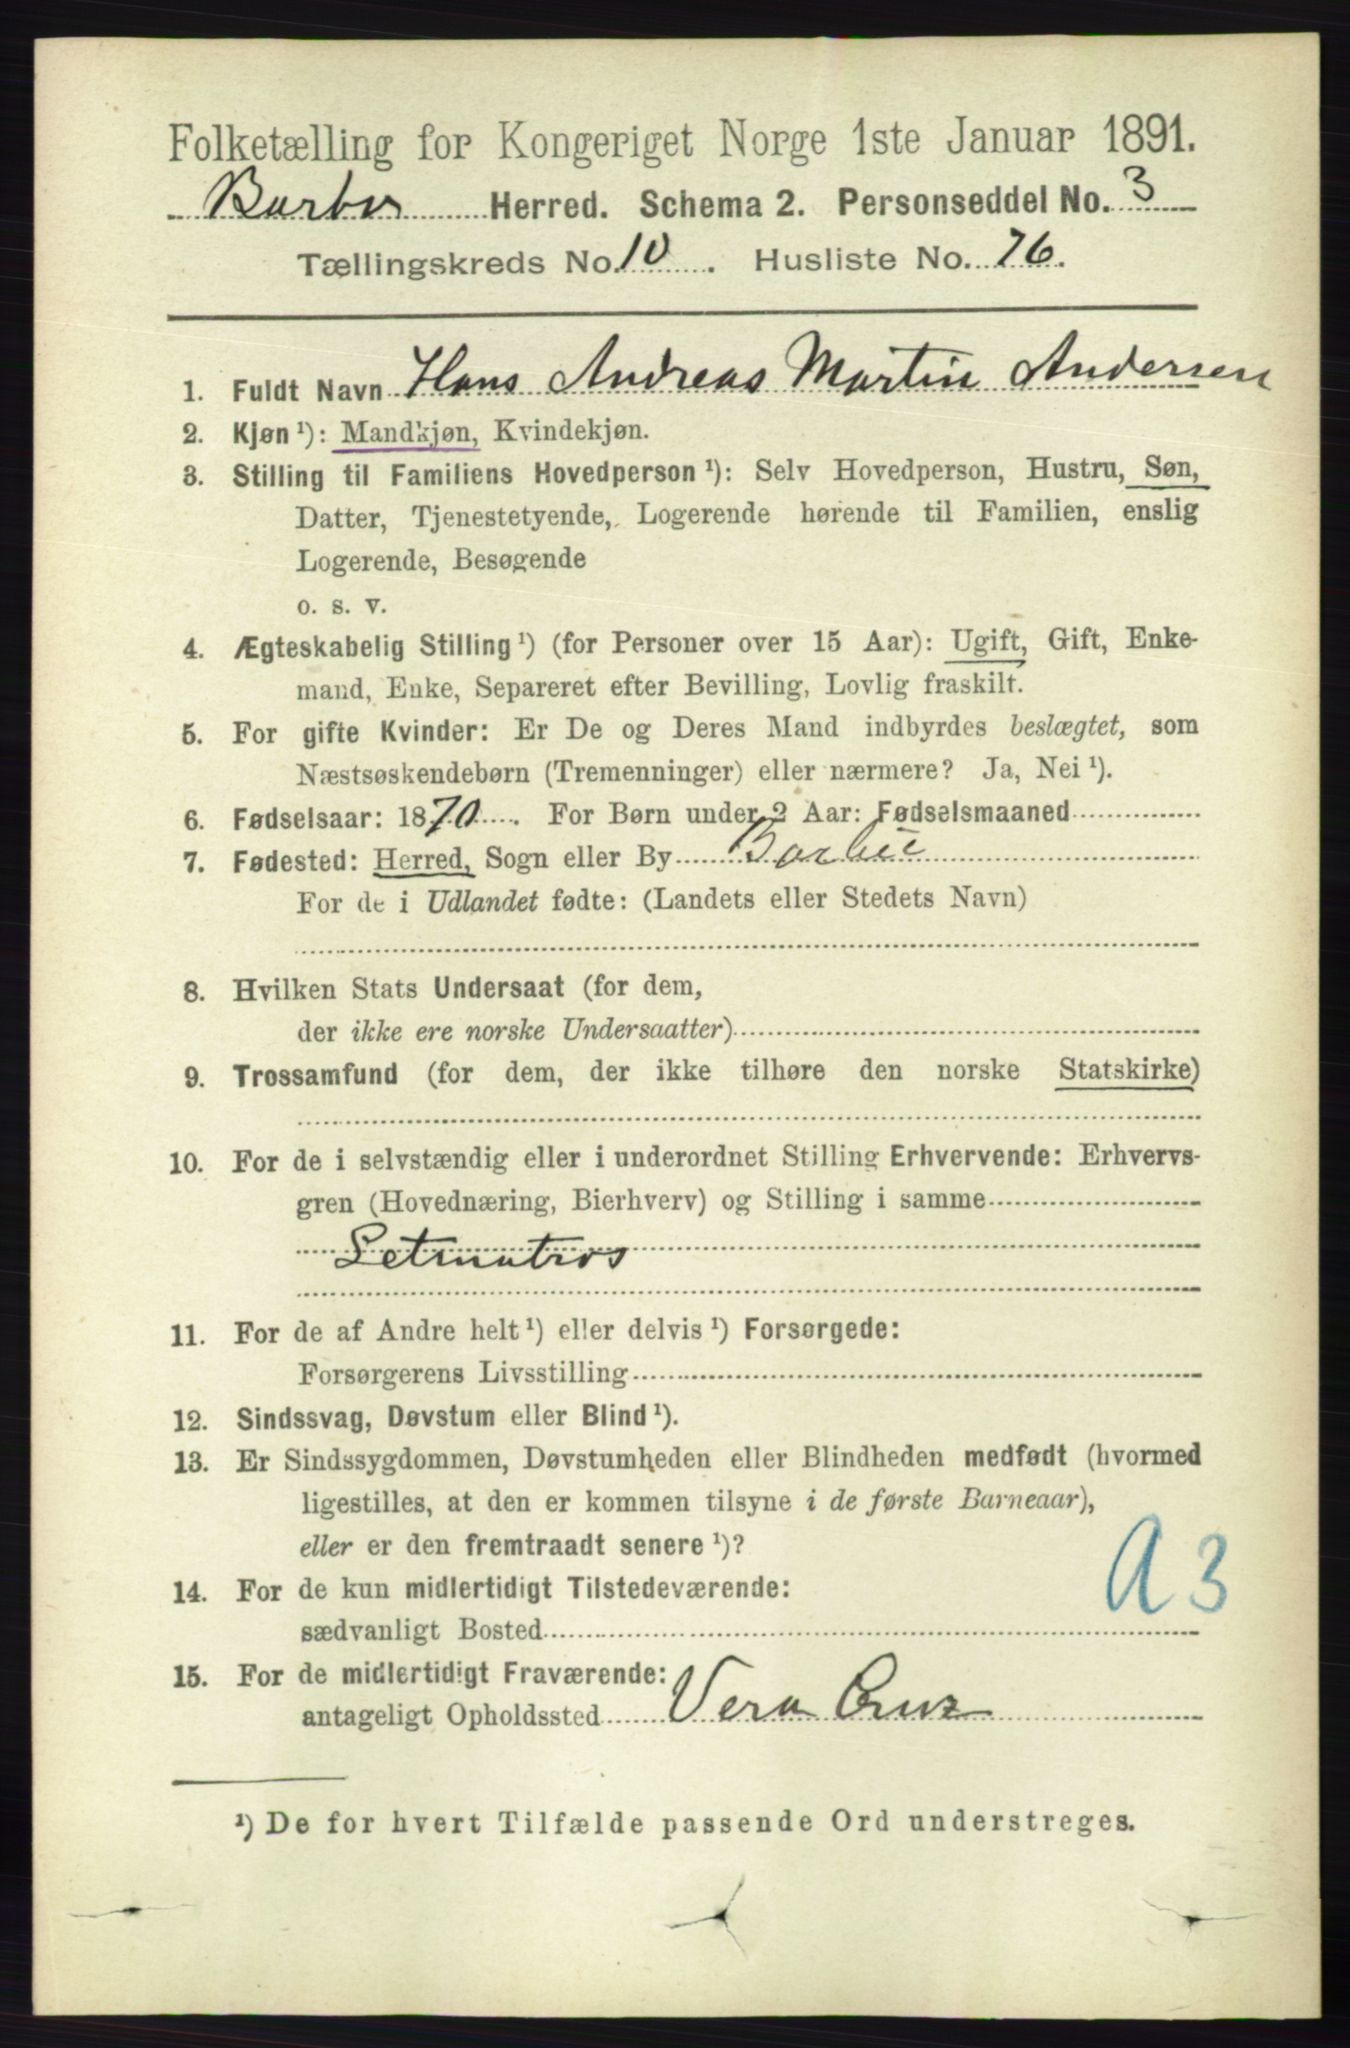 Folketælling for Kongeriget Norge 1ste Januar 1891.
Barbo Herred. Schema 2. Personseddel No. 3
Tællingskreds No. 10. Husliste No. 76.
1. Fuldt Navn Hans Andreas Martin Andersen
2. Kjøn¹): Mandkjøn, Kvindekjøn.
3. Stilling til Familiens Hovedperson¹): Selv Hovedperson, Hustru, Søn,
Datter, Tjenestetyende, Logerende hørende til Familien, enslig
Logerende, Besøgende
o. s. v.
4. Ægteskabelig Stilling¹) (for Personer over 15 Aar): Ugift, Gift, Enke-
mand, Enke, Separeret efter Bevilling, Lovlig fraskilt.
5. For gifte Kvinder: Er De og Deres Mand indbyrdes beslægtet, som
Næstsøskendebørn (Tremenninger) eller nærmere? Ja, Nei¹).
6. Fødselsaar: 1870. For Børn under 2 Aar: Fødselsmaaned
7. Fødested: Herred, Sogn eller By Barbu
For de i Udlandet fødte: (Landets eller Stedets Navn)
8. Hvilken Stats Undersaat (for dem,
der ikke ere norske Undersaatter)
9. Trossamfund (for dem, der ikke tilhøre den norske Statskirke)
10. For de i selvstændig eller i underordnet Stilling Erhvervende: Erhvervs-
gren (Hovednæring, Bierhverv) og Stilling i samme
Letmatros
11. For de af Andre helt¹) eller delvis¹) Forsørgede:
Forsørgerens Livsstilling
12. Sindssvag, Døvstum eller Blind¹).
13. Er Sindssygdommen, Døvstumheden eller Blindheden medfødt (hvormed
ligestilles, at den er kommen tilsyne i de første Barneaar),
eller er den fremtraadt senere¹)?
A 3
14. For de kun midlertidigt Tilstedeværende:
sædvanligt Bosted
15. For de midlertidigt Fraværende:
antageligt Opholdssted Vera Cruz
¹) De for hvert Tilfælde passende Ord understreges.